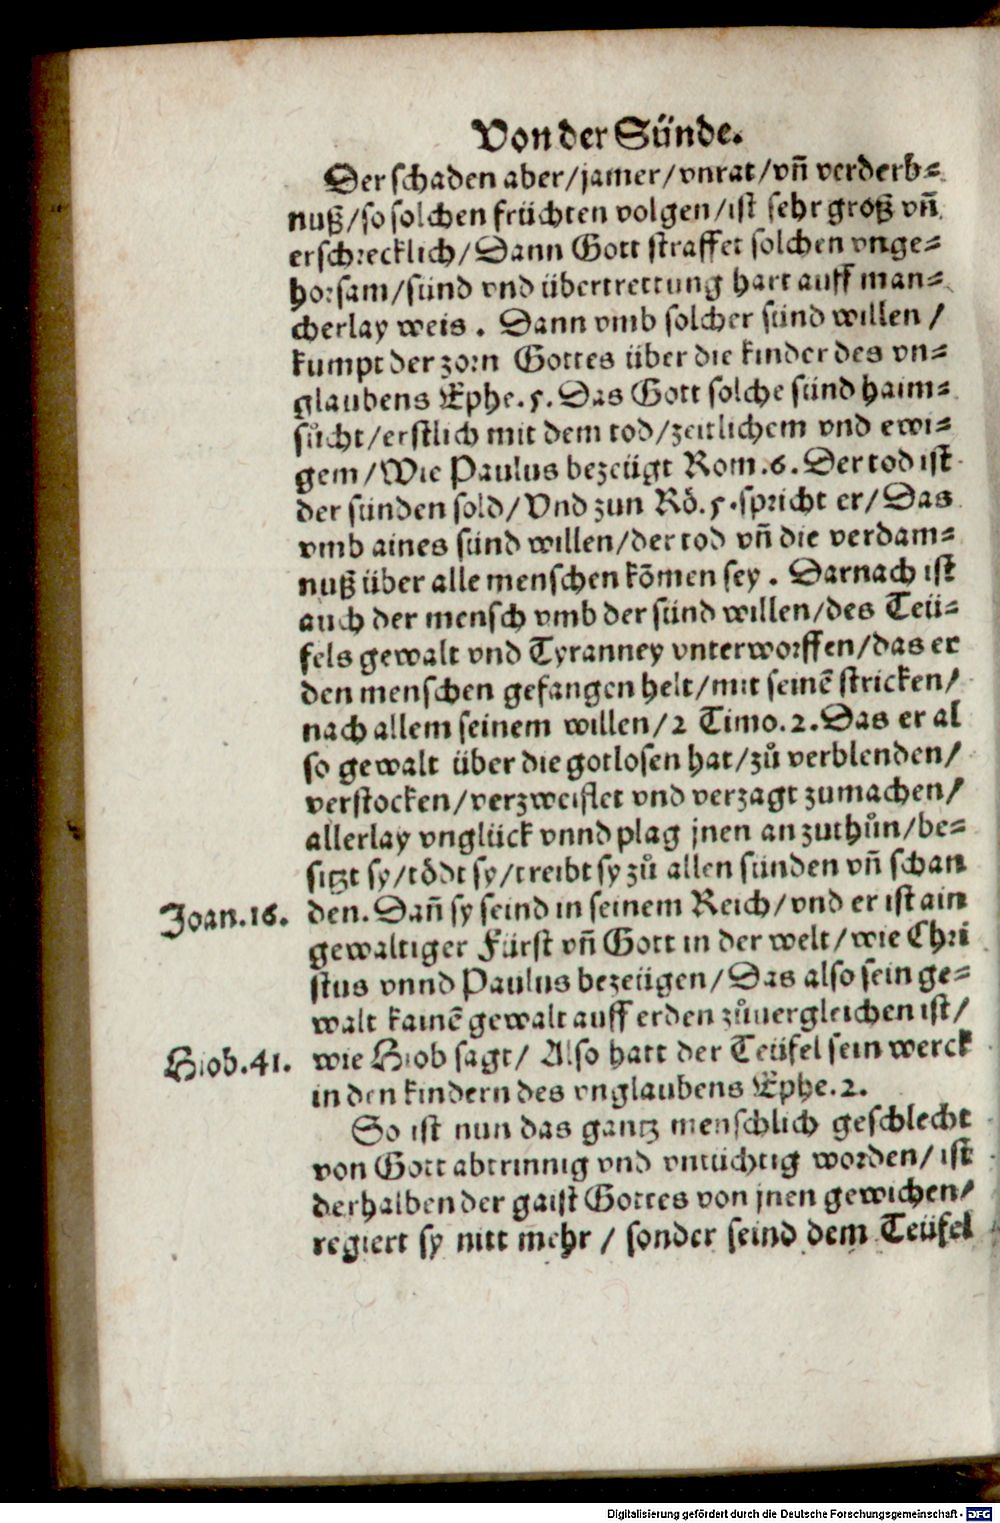 Von der Sünde.
Der schaden aber/jamer/vnrat/vñ verderb-
nuß/so solchen früchten volgen/ist sehr groß vñ
erschrecklich/Dann Gott straffet solchen vnge-
horsam/sünd vnd übertrettung hart auff man-
cherlay weis. Dann vmb solcher sünd willen/
kumpt der zorn Gottes über die kinder des vn-
glaubens Ephe.5. Das Gott solche sünd haim-
sůcht/erstlich mit dem tod/zeitlichem vnd ewi-
gem/Wie Paulus bezeügt Rom.6. Der tod ist
der sünden sold/Vnd zun Rö.5. spricht er/Das
vmb aines sünd willen/der tod vñ die verdam-
nuß über alle menschen kõmen sey. Darnach ist
auch der mensch vmb der sünd willen/des Teü-
fels gewalt vnd Tyranney vnterworffen/das er
den menschen gefangen helt/mit seinẽ stricken/
nach allem seinem willen/2 Timo.2. Das er al
so gewalt über die gotlosen hat/zů verblenden/
verstocken/verzweiflet vnd verzagt zumachen/
allerlay vnglück vnnd plag jnen an zuthůn/be-
sitzt sy/tödt sy/treibt sy zů allen sünden vñ schan
Joan.16. den. Dañ sy seind in seinem Reich/vnd er ist ain
gewaltiger Fürst vñ Gott in der welt/wie Chri
stus vnnd Paulus bezeügen/Das also sein ge-
walt kainẽ gewalt auff erden zůuergleichen ist/
Hiob.41. wie Hiob sagt/ Also hatt der Teüfel sein werck
in den kindern des vnglaubens Ephe.2.
So ist nun das gantz menschlich geschlecht
von Gott abtrinnig vnd vntüchtig worden/ist
derhalben der gaist Gottes von jnen gewichen/
regiert sy nitt mehr/sonder seind dem Teüfel
Digitalisierung gefördert durch die Deutsche Forschungsgemeinschaft - DFG